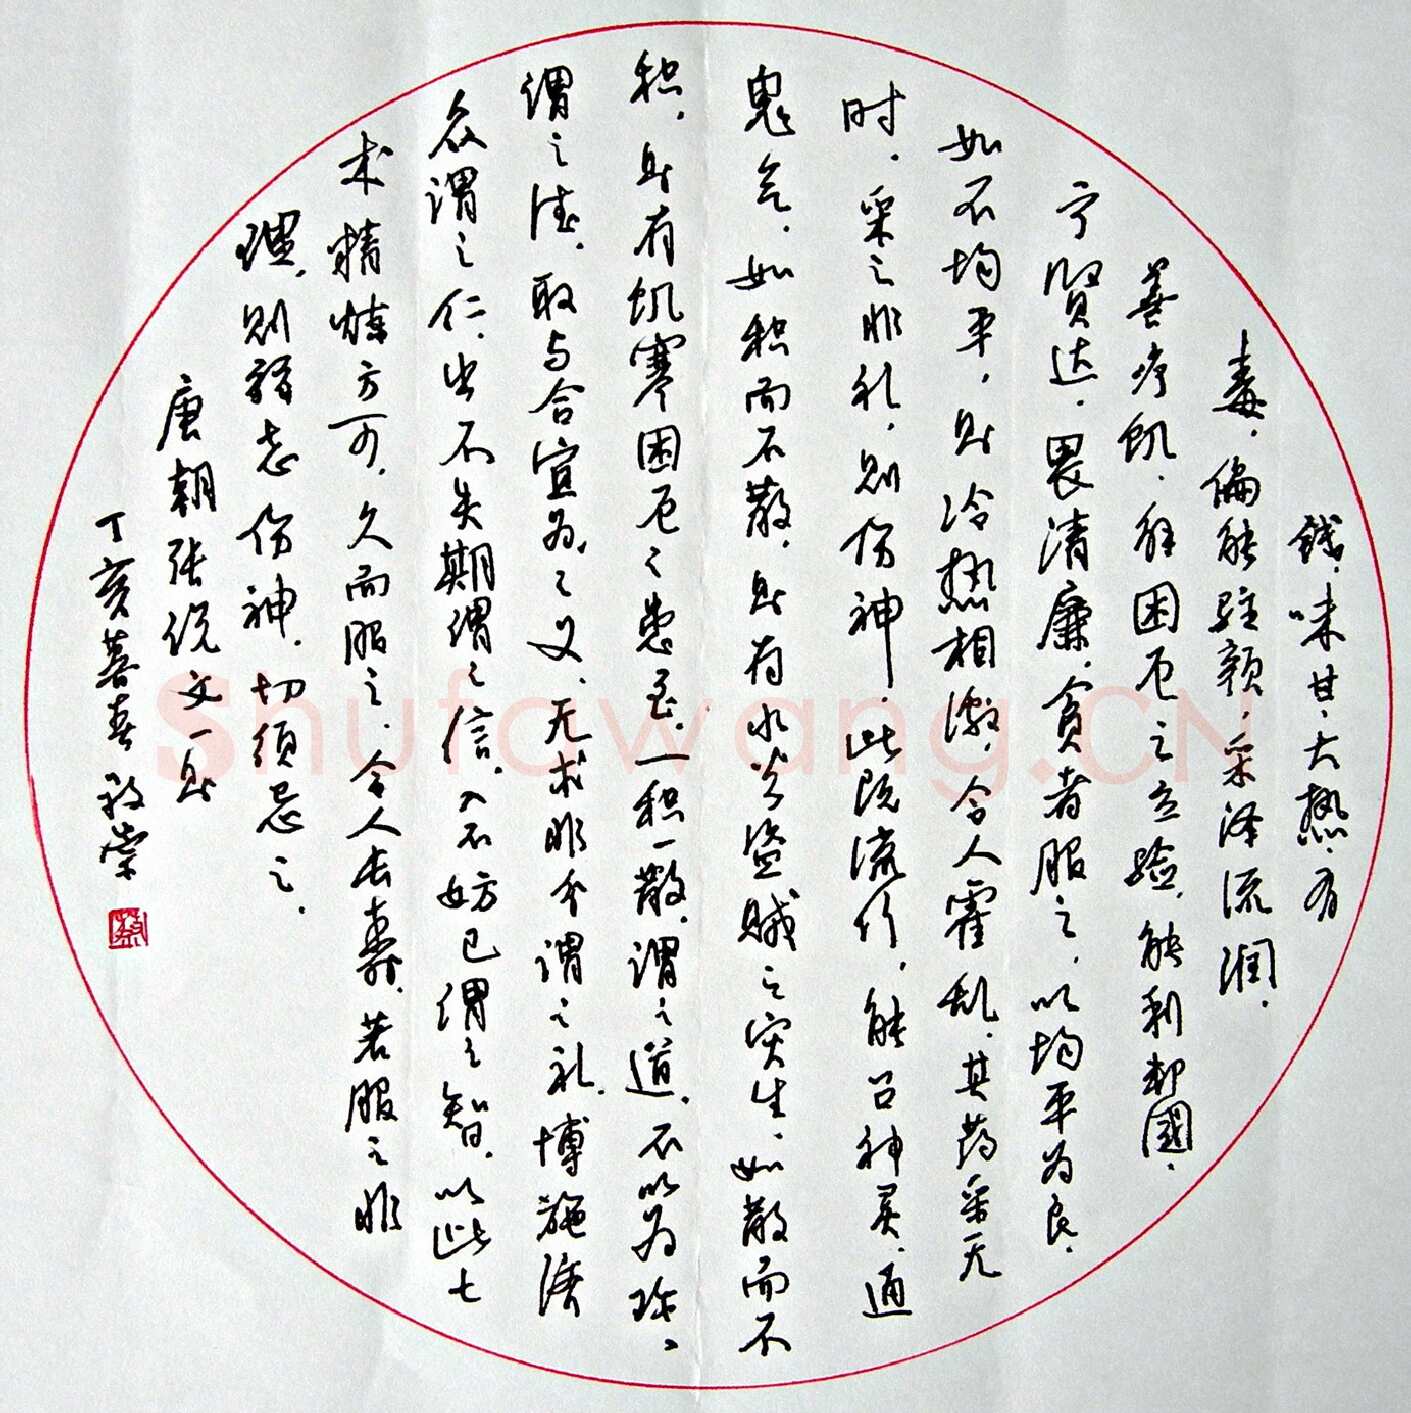 钱，味甘，大热，有
毒，偏能驻颜，采泽流润，
善疗饥，解困厄之立验，能利邦國，
宁賢达，畏清廉，贪者服之，以均平为良，
如不均平，则冷热相激，令人霍乱，其药采无
时，采之非礼，则伤神，此既流行，能召神灵，通
鬼气，如积而不散，则有水火盗贼之灾生，如散而不
积，则有饥寒困厄之患至，一积一散，谓之道，不以为珍，
谓之德，取与合宜为之义，无求非分谓之礼，博施济
众谓之仁，出不失期谓之信，入不妨己谓之智，以此七
术精炼方可，久而服之，令人长寿，若服之非
理，则弱志伤神，切须忌之。
唐朝张说文一则
丁亥
Shufawang.CN